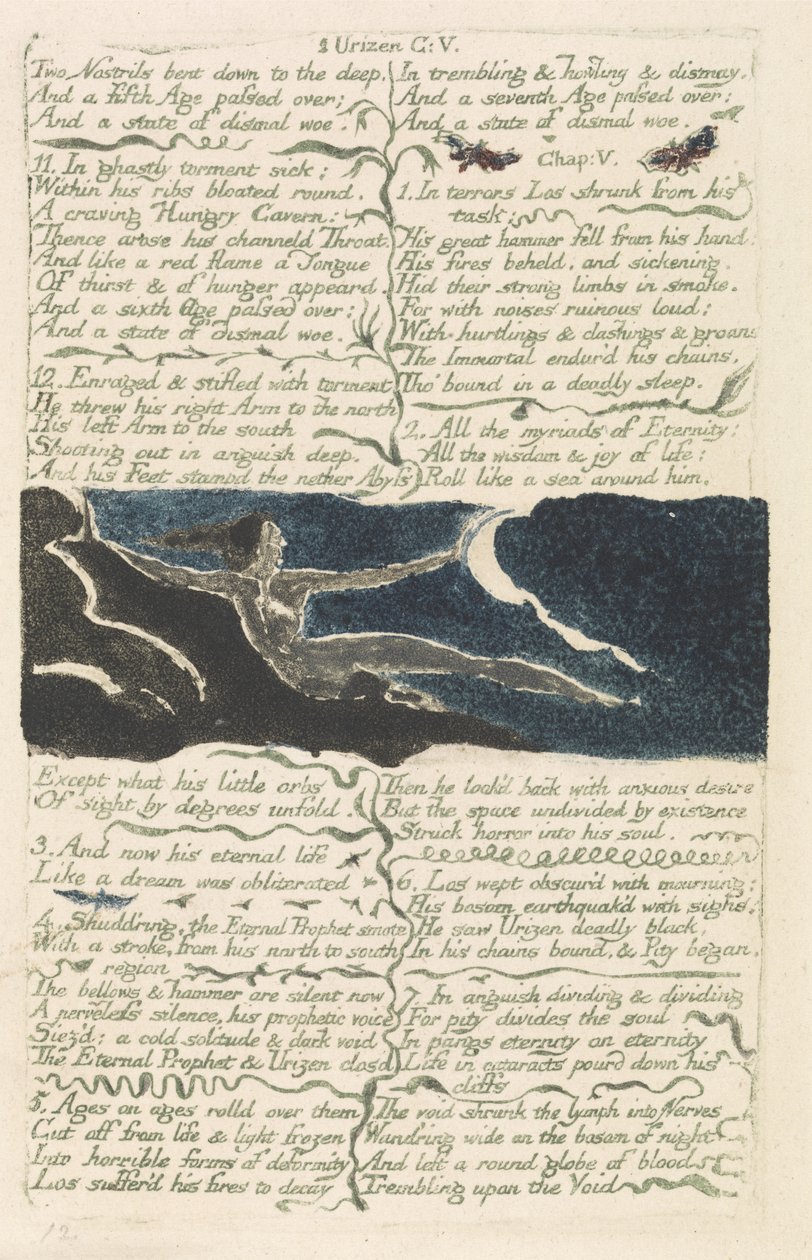 1 Urizen C: V.
Two Nostrils bent down to the deep.
And a fifth Age passed over;
And a state of dismal woe.
11. In ghastly torment sick;
Within his ribs bloated round.
A craving Hungry Cavern:
Thence arose his channeld Throat.
And like a red flame a Tongue
Of thirst & of hunger appeard.
And a sixth Age passed over:
And a state of dismal woe.
12. Enraged & stifled with torment
He threw his right Arm to the north
His left Arm to the south
Shooting out in anguish deep.
And his Feet stampd the nether Abyss
In trembling & howling & dismay.
And a seventh Age passed over:
And a state of dismal woe.
Chap: V.
1. In terrors Los shrunk from his
task:
His great hammer fell from his hand:
His fires beheld, and sickening.
Hid their strong limbs in smoke.
For with noises ruinous loud;
With hurtlings & clashings & groans
The Immortal endur'd his chains.
Tho' bound in a deadly sleep.
2. All the myriads of Eternity:
All the wisdom & joy of life:
Roll like a sea around him.
Except what his little orbs
Of sight by degrees unfold.
3. And now his eternal life
Like a dream was obliterated
4. Shudd'ring, the Eternal Prophet smote
With a stroke, from his north to south
region
The bellows & hammer are silent now
A nerveless silence, his prophetic voice
Siez'd; a cold solitude & dark void
The Eternal Prophet & Urizen clos'd
5. Ages on ages rolld over them
Cut off from life & light frozen
Into horrible forms of deformity
Los suffer'd his fires to decay
Then he look'd back with anxious desire
But the space undivided by existence
Struck horror into his soul.
6. Los wept obscur'd with mourning:
His bosom earthquak'd with sighs;
He saw Urizen deadly black,
In his chains bound, & Pity began,
7. In anguish dividing & dividing
For pity divides the soul
In pangs eternity on eternity
Life in cataracts pourd down his
cliffs
The void shrunk the lymph into Nerves
Wand'ring wide on the bosom of night
And left a round globe of blood
Trembling upon the Void
12